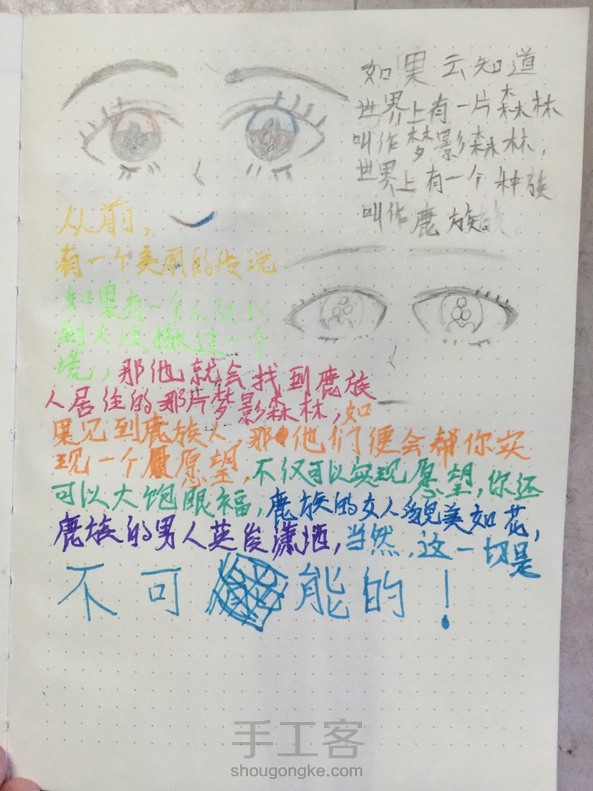 如果云知道
世界上有一片森林
叫作梦影森林,
世界上有一个种族
叫作鹿族。
从前,
有一个美丽的传说
如果有一个人从小
到大没撒过一个
谎,那他就会找到鹿族
人居住的那片梦影森林,如
果见到鹿族人,那他们便会帮你实
现一个愿望,不仅可以实现愿望,你还
可以大饱眼福,鹿族的女人貌美如花,
鹿族的男人英俊潇洒,当然,这一切是
不可能的!
手工客
shougongke.com